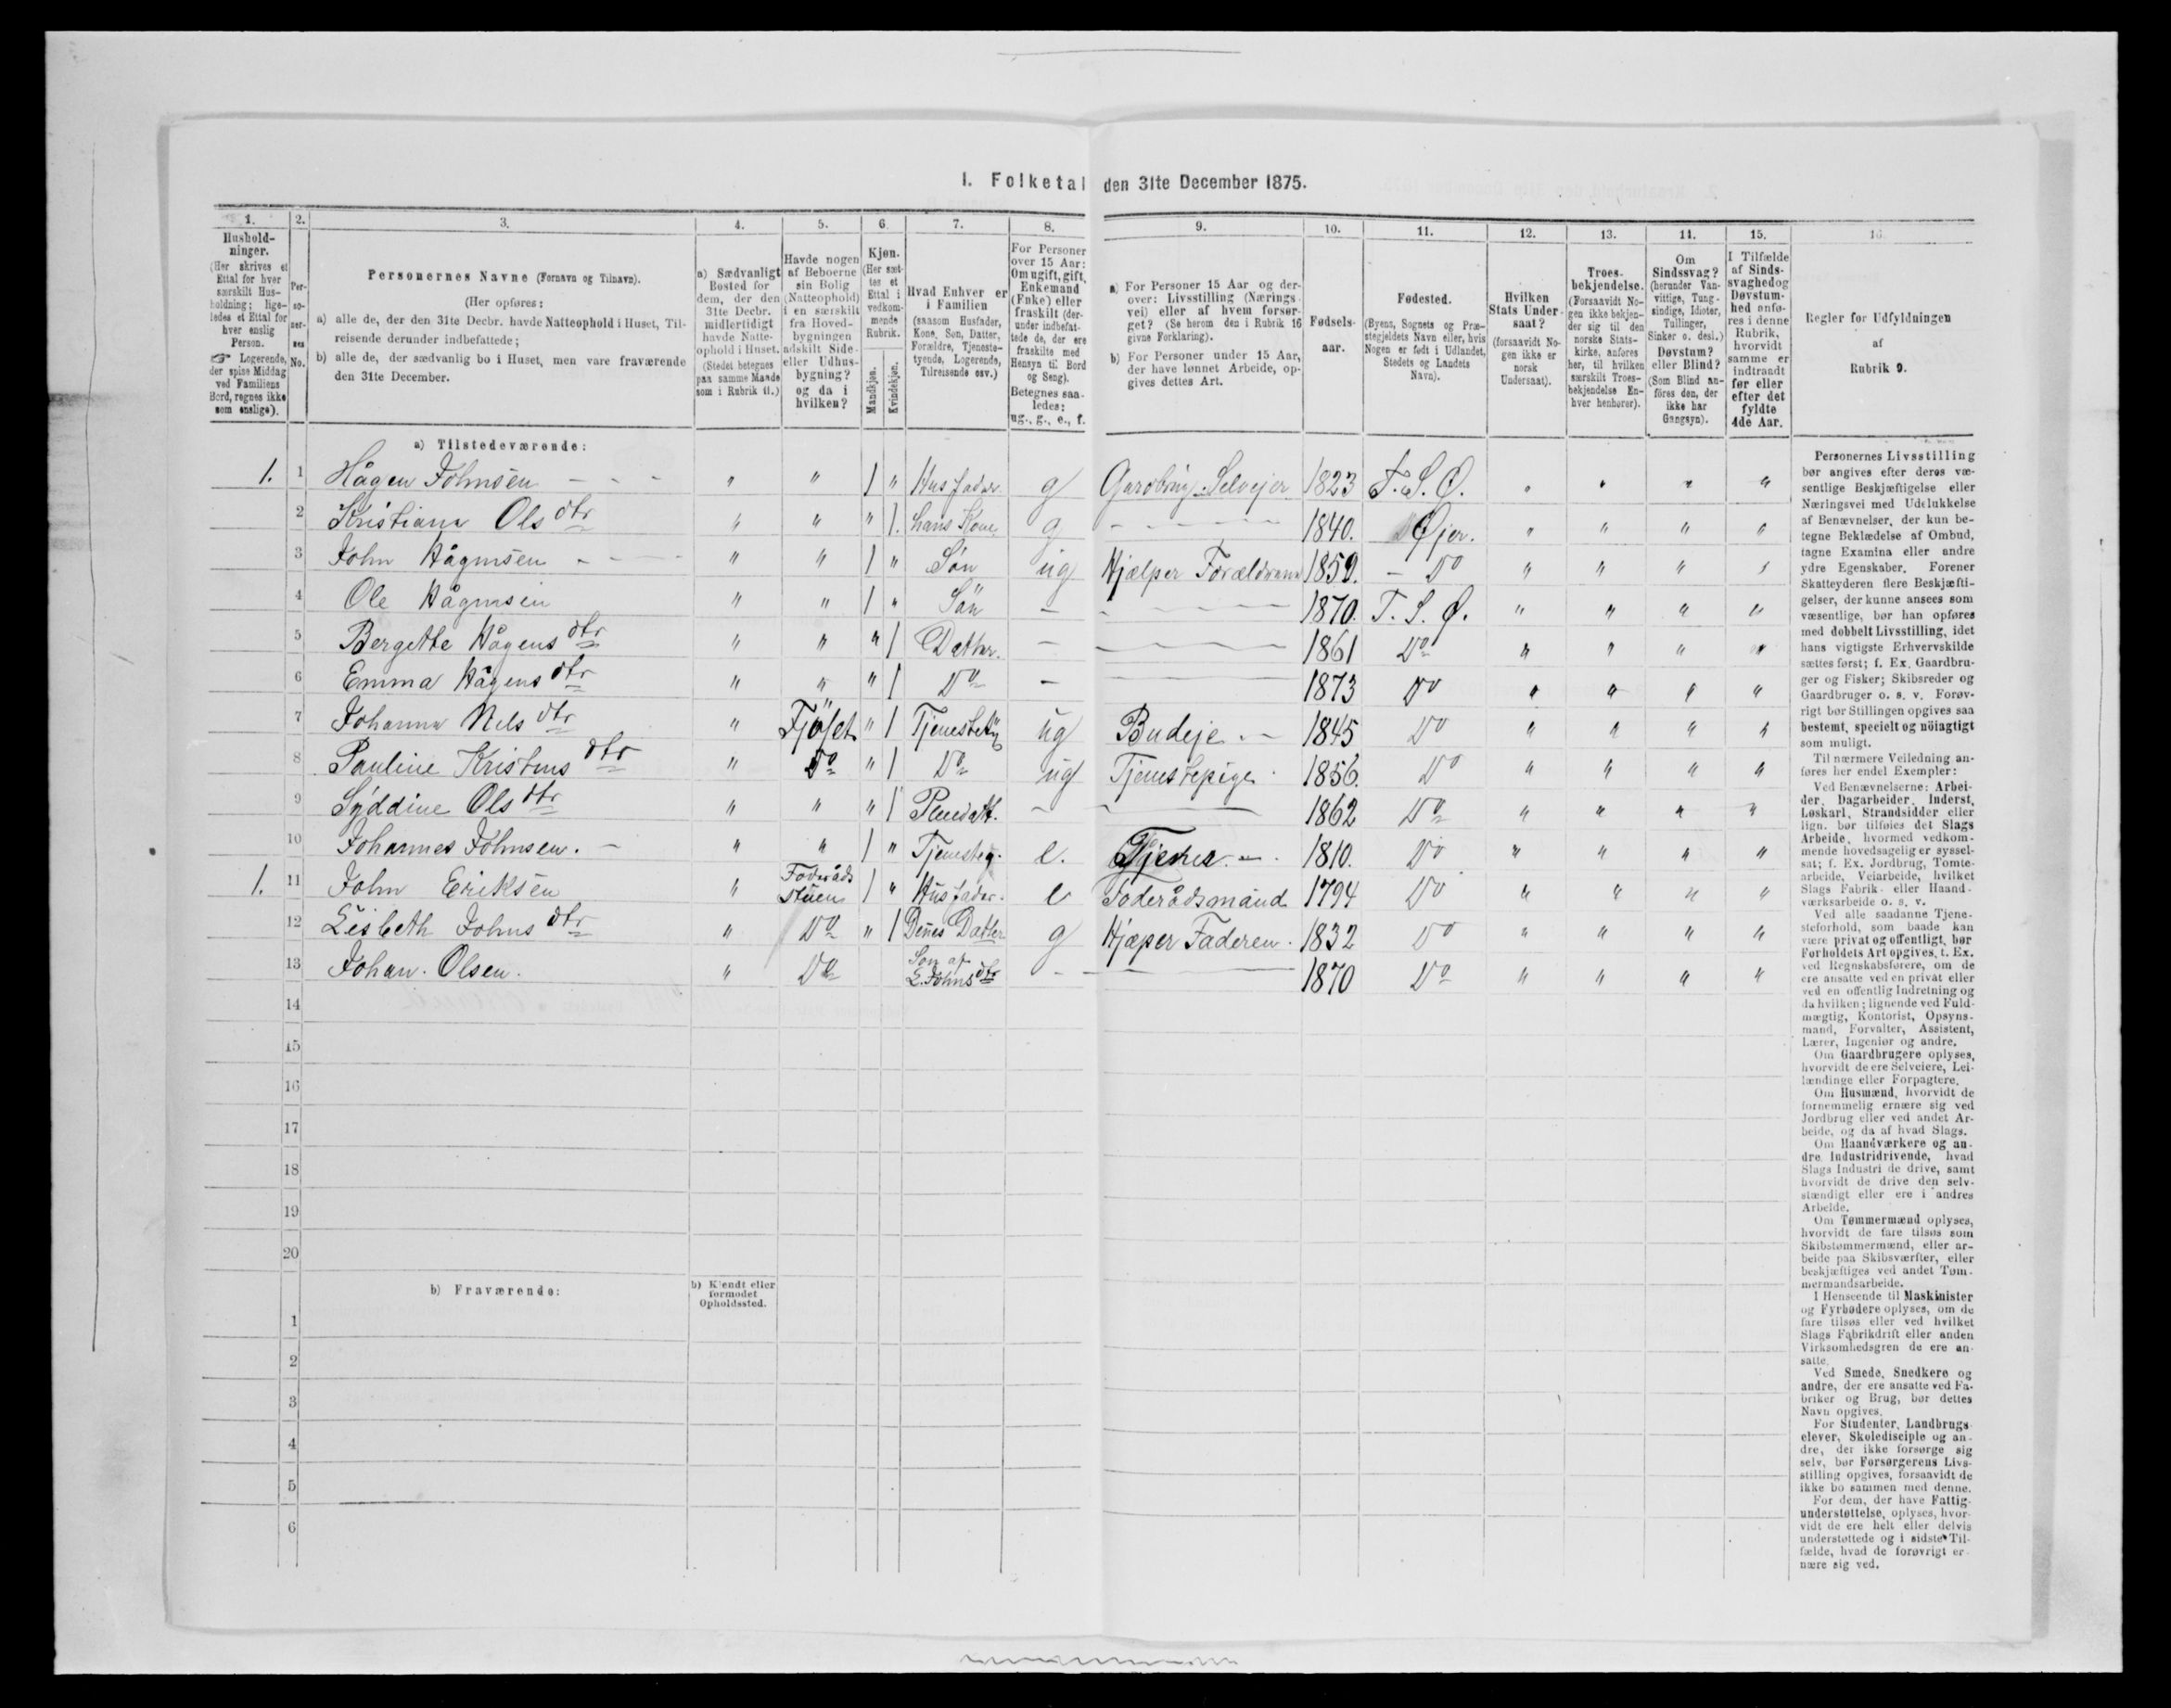 I. Folketal den 31te December 1875.
1. 2. 3. 4. 5. 6. 7. 8. 9. 10. 11. 12. 13. 14. 15. 16.
Hushold-
ninger.
(Her skrives et
Ettal for hver
særskilt Hus-
holdning; lige-
ledes et Ettal for
hver enslig
Person.
☞ Logerende,
der spise Middag
ved Familiens
Bord, regnes ikke
som enslige).
Per-
so-
ner-
nes
No.
Personernes Navne (Fornavn og Tilnavn).
(Her opføres:
a) alle de, der den 31te Decbr. havde Natteophold i Huset, Til-
reisende derunder indbefattede;
b) alle de, der sædvanlig bo i Huset, men vare fraværende
den 31te December.
a) Sædvanligt
Bosted for
dem, der den
31te Decbr.
midlertidigt
havde Natte-
ophold i Huset.
(Stedet betegnes
paa samme Maade
som i Rubrik 11.)
Havde nogen
af Beboerne
sin Bolig
(Natteophold)
i en særskilt
fra Hoved-
bygningen
adskilt Side-
eller Udhus-
bygning?
og da i
hvilken?
Kjøn.
(Her sæt-
tes et
Ettal i
vedkom-
mende
Rubrik.
Mandkjøn.
Kvindekjøn.
Hvad Enhver er
i Familien
(saasom Husfader,
Kone, Søn, Datter,
Forældre, Tjeneste-
tyende, Logerende,
Tilreisende osv.)
For Personer
over 15 Aar:
Om ugift, gift,
Enkemand
(Enke) eller
fraskilt (der-
under indbefat-
tede de, der ere
fraskilte med
Hensyn til Bord
og Seng).
Betegnes saa-
ledes:
ug., g., e., f.
a) For Personer 15 Aar og der-
over: Livsstilling (Nærings-
vei) eller af hvem forsør-
get? (Se herom den i Rubrik 16
givne Forklaring).
b) For Personer under 15 Aar,
der have lønnet Arbeide, op-
gives dettes Art.
Fødsels-
aar.
Fødested.
(Byens, Sognets og Præ-
stegjeldets Navn eller, hvis
Nogen er født i Udlandet,
Stedets og Landets
Navn).
Hvilken
Stats Under-
saat?
(forsaavidt No-
gen ikke er
norsk
Undersaat).
Troes-
bekjendelse.
(Forsaavidt No-
gen ikke bekjen-
der sig til den
norske Stats-
kirke, anføres
her, til hvilken
særskilt Troes-
bekjendelse En-
hver henhører).
Om
Sindssvag?
(herunder Van-
vittige, Tung-
sindige, Idioter,
Tullinger,
Sinker o. desl.)
Døvstum?
eller Blind?
(Som Blind an-
føres den, der
ikke har
Gangsyn).
I Tilfælde
af Sinds-
svaghed og
Døvstum-
hed anfø-
res i denne
Rubrik,
hvorvidt
samme er
indtraadt
før eller
efter det
fyldte
4de Aar.
Regler for Udfyldningen
af
Rubrik 9.
a) Tilstedeværende:
1. 1 Hågen Johnsen - - - " " 1 " Husfader g Gardbrug. Selvejer 1823 T. S. Ø. " " " "
2 Kristiana Olsdtr " " " 1. hans Kone g - - - 1840. Øjer. " " " "
3 John Hågensen - - - " " 1 " Søn ug Hjælper Forældrene 1859. - Do " " " "
4 Ole Hågensen " " 1 " Søn - - - 1870. T. S. Ø. " " " "
5 Bergette Hågensdtr " " " 1 Datter. - - 1861 Do " " " "
6 Emma Hågensdtr " " " 1 Do - - 1873 Do " " " "
7 Johanna Nelsdtr " Fjøset " 1 ug Budeje. - 1845 Do " " " "
8 Pauline Kristensdtr " Do " 1 Do ug Tjenestepige. 1856. Do " " " "
9 Syddine Olsdtr " " " 1 Pleiedatt. - - 1862 Do " " " "
10 Johannes Johnsen. - " " 1 " e. Tjener. - 1810. Do " " " "
1. 11 John Eriksen " Foderåds
stuen 1 " Husfader. e Foderådsmand 1794 Do " " " "
12 Lisbeth Johnsdtr " Do " 1 Denes Datter g Hjæper Faderen. 1832 Do " " " "
13 Johan. Olsen. " Do Søn af
L. Johnsdtr - - 1870 Do " " " "
14
15
16
17
18
19
20
b) Fraværende:
b) Kjendt eller
formodet
Opholdssted.
1
2
3
4
5
6
Personernes Livsstilling
bør angives efter deres væ-
sentlige Beskjæftigelse eller
Næringsvei med Udelukkelse
af Benævnelser, der kun be-
tegne Beklædelse af Ombud,
tagne Examina eller andre
ydre Egenskaber. Forener
Skatteyderen flere Beskjæfti-
gelser, der kunne ansees som
væsentlige, bør han opføres
med dobbelt Livsstilling, idet
hans vigtigste Erhvervskilde
sættes først; f. Ex. Gaardbru-
ger og Fisker; Skibsreder og
Gaardbruger o. s. v. Forøv-
rigt bør Stillingen opgives saa
bestemt, specielt og nöiagtigt
som muligt.
Til nærmere Veiledning an-
føres her endel Exempler:
Ved Benævnelserne: Arbei-
der, Dagarbeider, Inderst,
Løskarl, Strandsidder eller
lign. bør tilføies det Slags
Arbeide, hvormed vedkom-
mende hovedsagelig er syssel-
sat; f. Ex. Jordbrug, Tomte-
arbeide, Veiarbeide, hvilket
Slags Fabrik- eller Haand-
værksarbeide o. s. v.
Ved alle saadanne Tjene-
steforhold, som baade kan
være privat og offentligt, bør
Forholdets Art opgives, t. Ex.
ved Regnskabsførere, om de
ere ansatte ved en privat eller
ved en offentlig Indretning og
da hvilken; lignende ved Fuld-
mægtig, Kontorist, Opsyns-
mand, Forvalter, Assistent,
Lærer, Ingeniør og andre.
Om Gaardbrugere oplyses,
hvorvidt de ere Selveiere, Lei-
lændinge eller Forpagtere.
Om Husmænd, hvorvidt de
fornemmelig ernære sig ved
Jordbrug eller ved andet Ar-
beide, og da af hvad Slags.
Om Haandværkere og an-
dre Industridrivende, hvad
Slags Industri de drive, samt
hvorvidt de drive den selv-
stændigt eller ere i andres
Arbeide.
Om Tømmermænd oplyses,
hvorvidt de fare tilsøs som
Skibstømmermænd, eller ar-
beide paa Skibsværfter, eller
beskjæftiges ved andet Tøm-
mermandsarbeide.
I Henseende til Maskinister
og Fyrbødere oplyses, om de
fare tilsøs eller ved hvilket
Slags Fabrikdrift eller anden
Virksomhedsgren de ere an-
satte.
Ved Smede, Snedkere og
andre, der ere ansatte ved Fa-
briker og Brug, bør dettes
Navn opgives.
For Studenter, Landbrugs-
elever, Skoledisciple og an-
dre, der ikke forsørge sig
selv, bør Forsørgerens Livs-
stilling opgives, forsaavidt de
ikke bo sammen med denne.
For dem, der have Fattig-
understøttelse, oplyses, hvor-
vidt de ere helt eller delvis
understøttede og i sidste Til-
fælde, hvad de forøvrigt er-
nære sig ved.